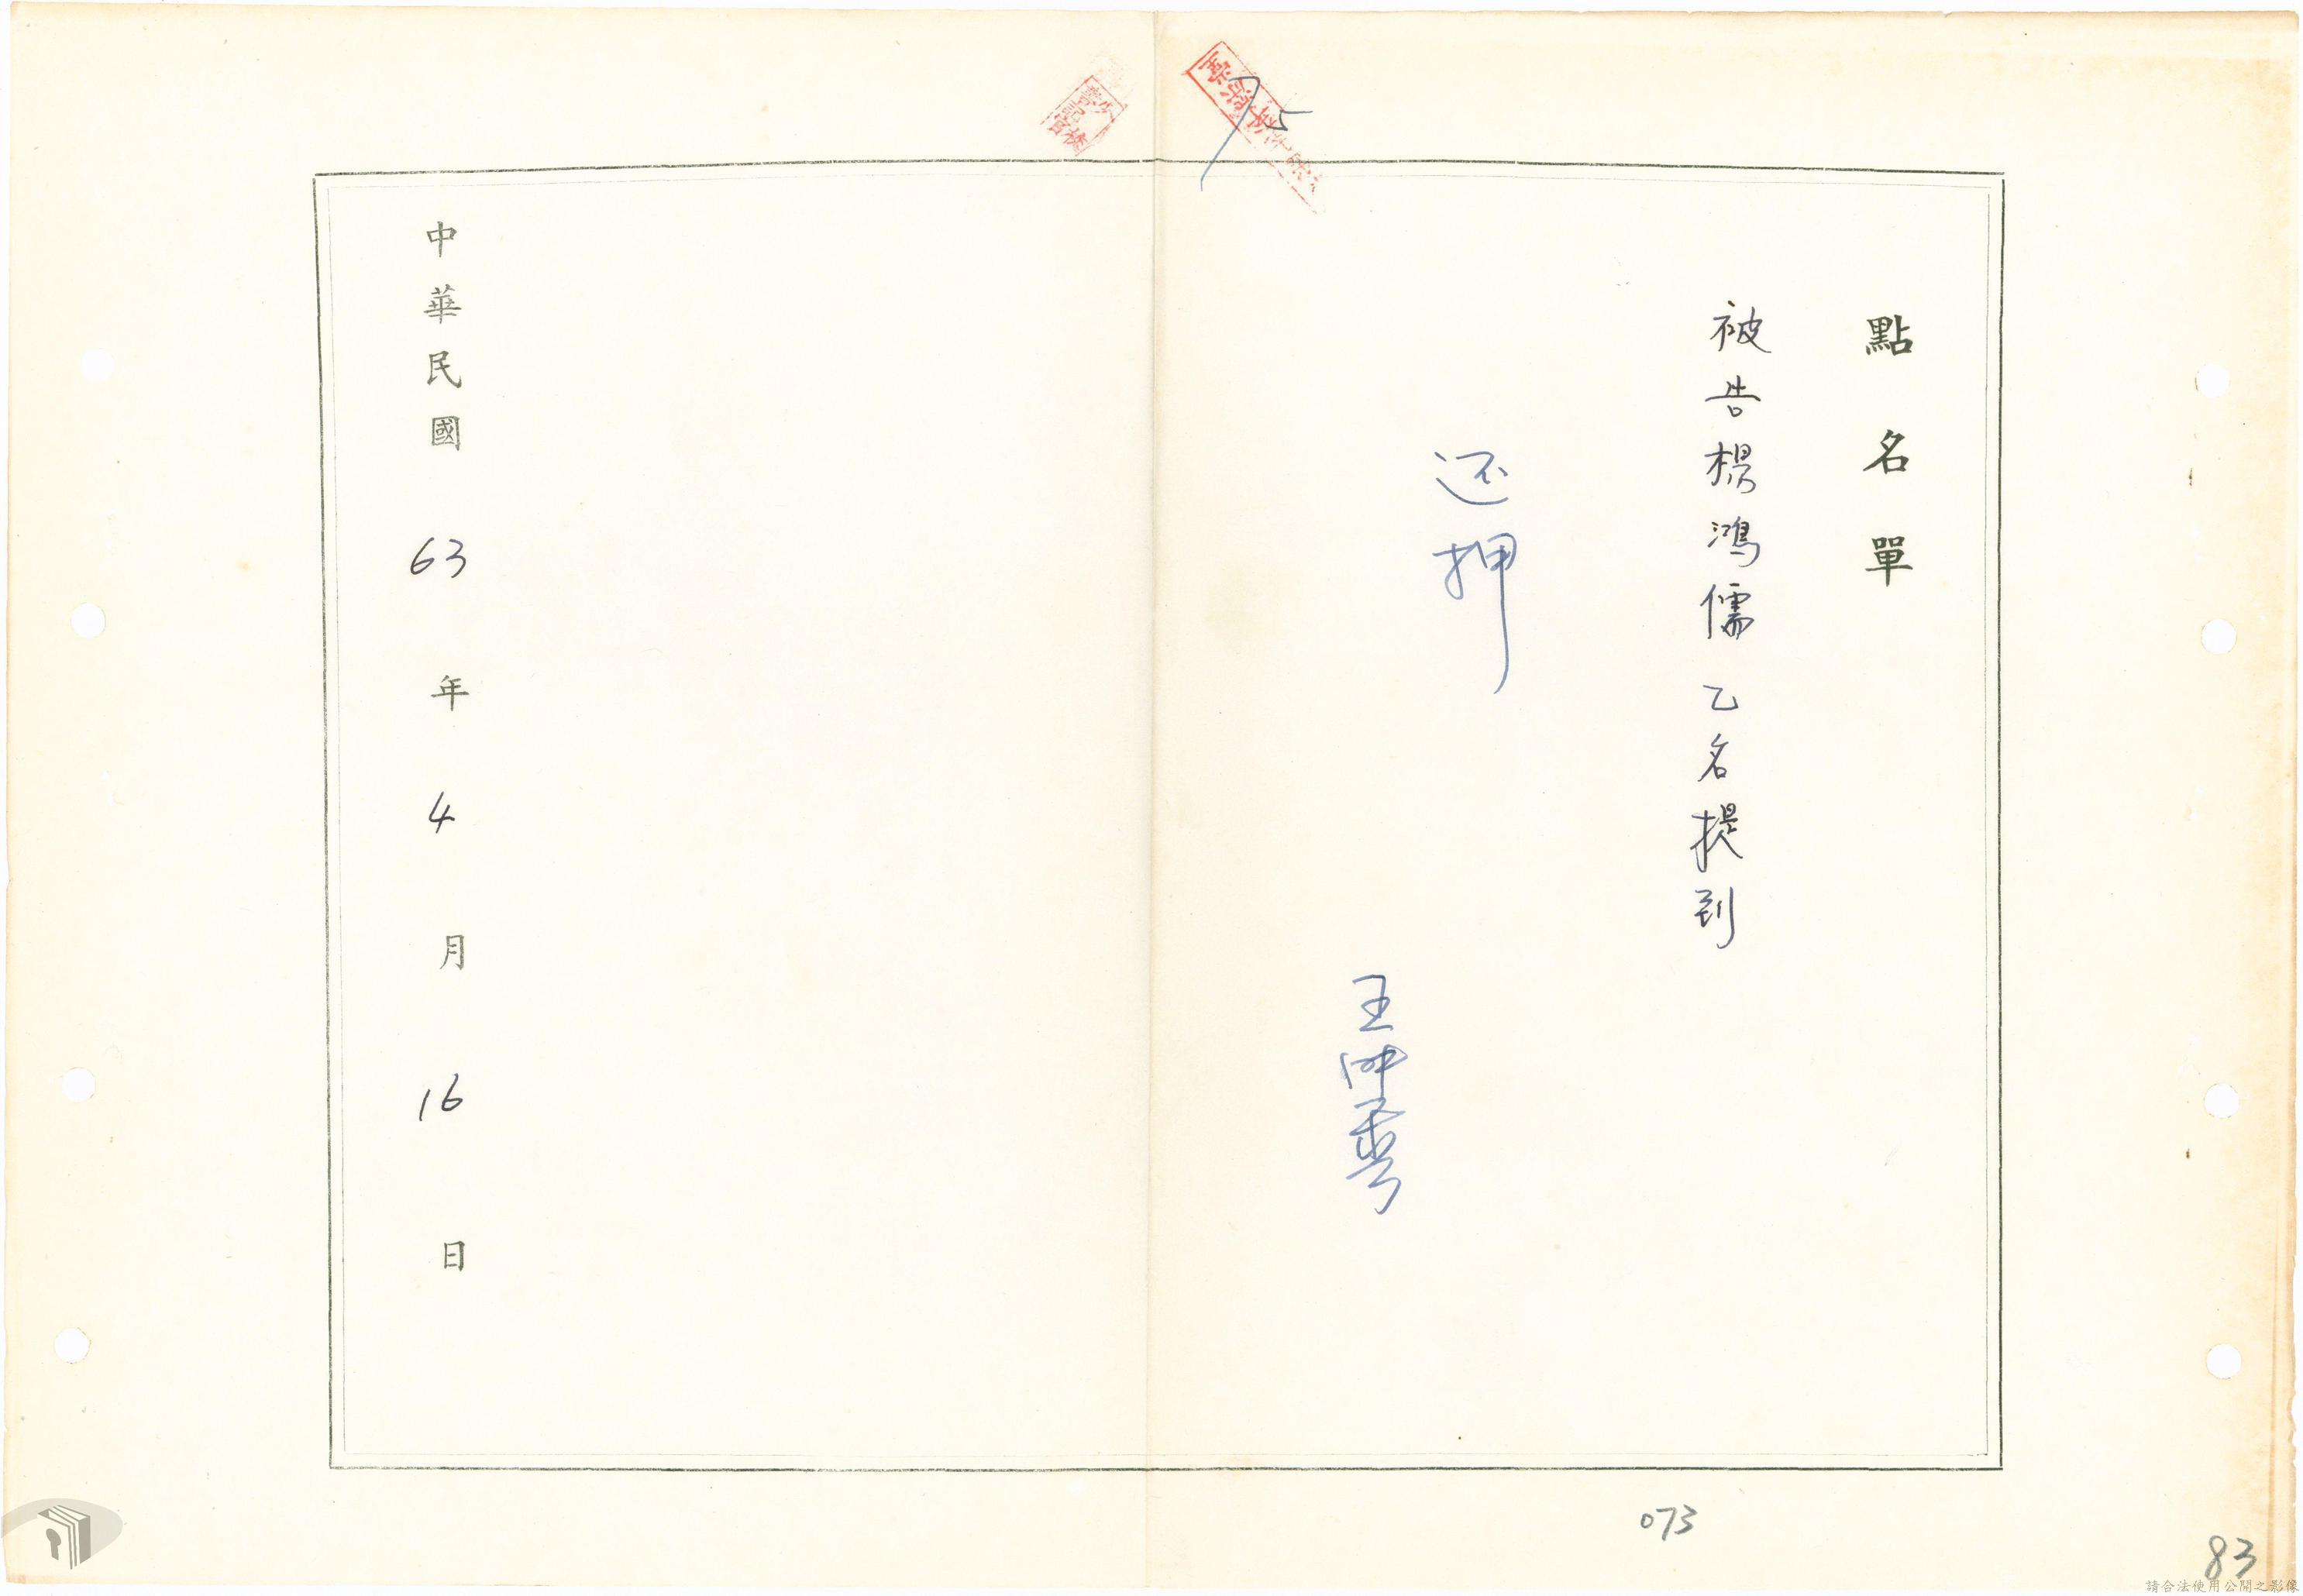 點名單
被告楊鴻儒乙名提到
还押
中華民國63年4月16日
75
073
83
請合法使用公開之影像